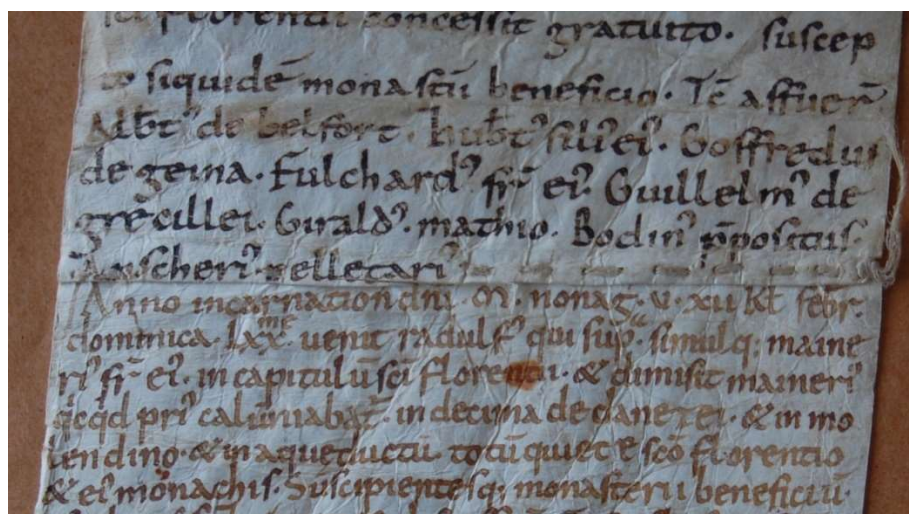 sci florentii concessit gratuito. suscep
to siquidē monastii beneficio. Tc̄ affuer̄
Albt᷒ de belfort. hubt᷒ fili᷒ ei᷒. Goffredus
de geina. Fulchard᷒ fr̄ ei᷒. Guillelm᷒ de
grecillei. Girald᷒. mathio. Bodin᷒ p̄positus.
Anscheri᷒ pelletari᷒
Anno incarnation̄ dn̄i. M. nonag. v. xii kl̄ febr̄.
dominica. lxxme. uenit radulf᷒ qui sup̄a. simulq; maine
ri᷒ fr̄ ei᷒. in capitulū sc̄i florentii. & dimisit maineri᷒
qicqid pri᷒ calūniabat᷒. in decima de daneꞇei. & in mo
lendino. & in aqueductū. totū quietē sc̄o florentio
& ei᷒ monachis. Suscipientesq; monasterii beneficiū.